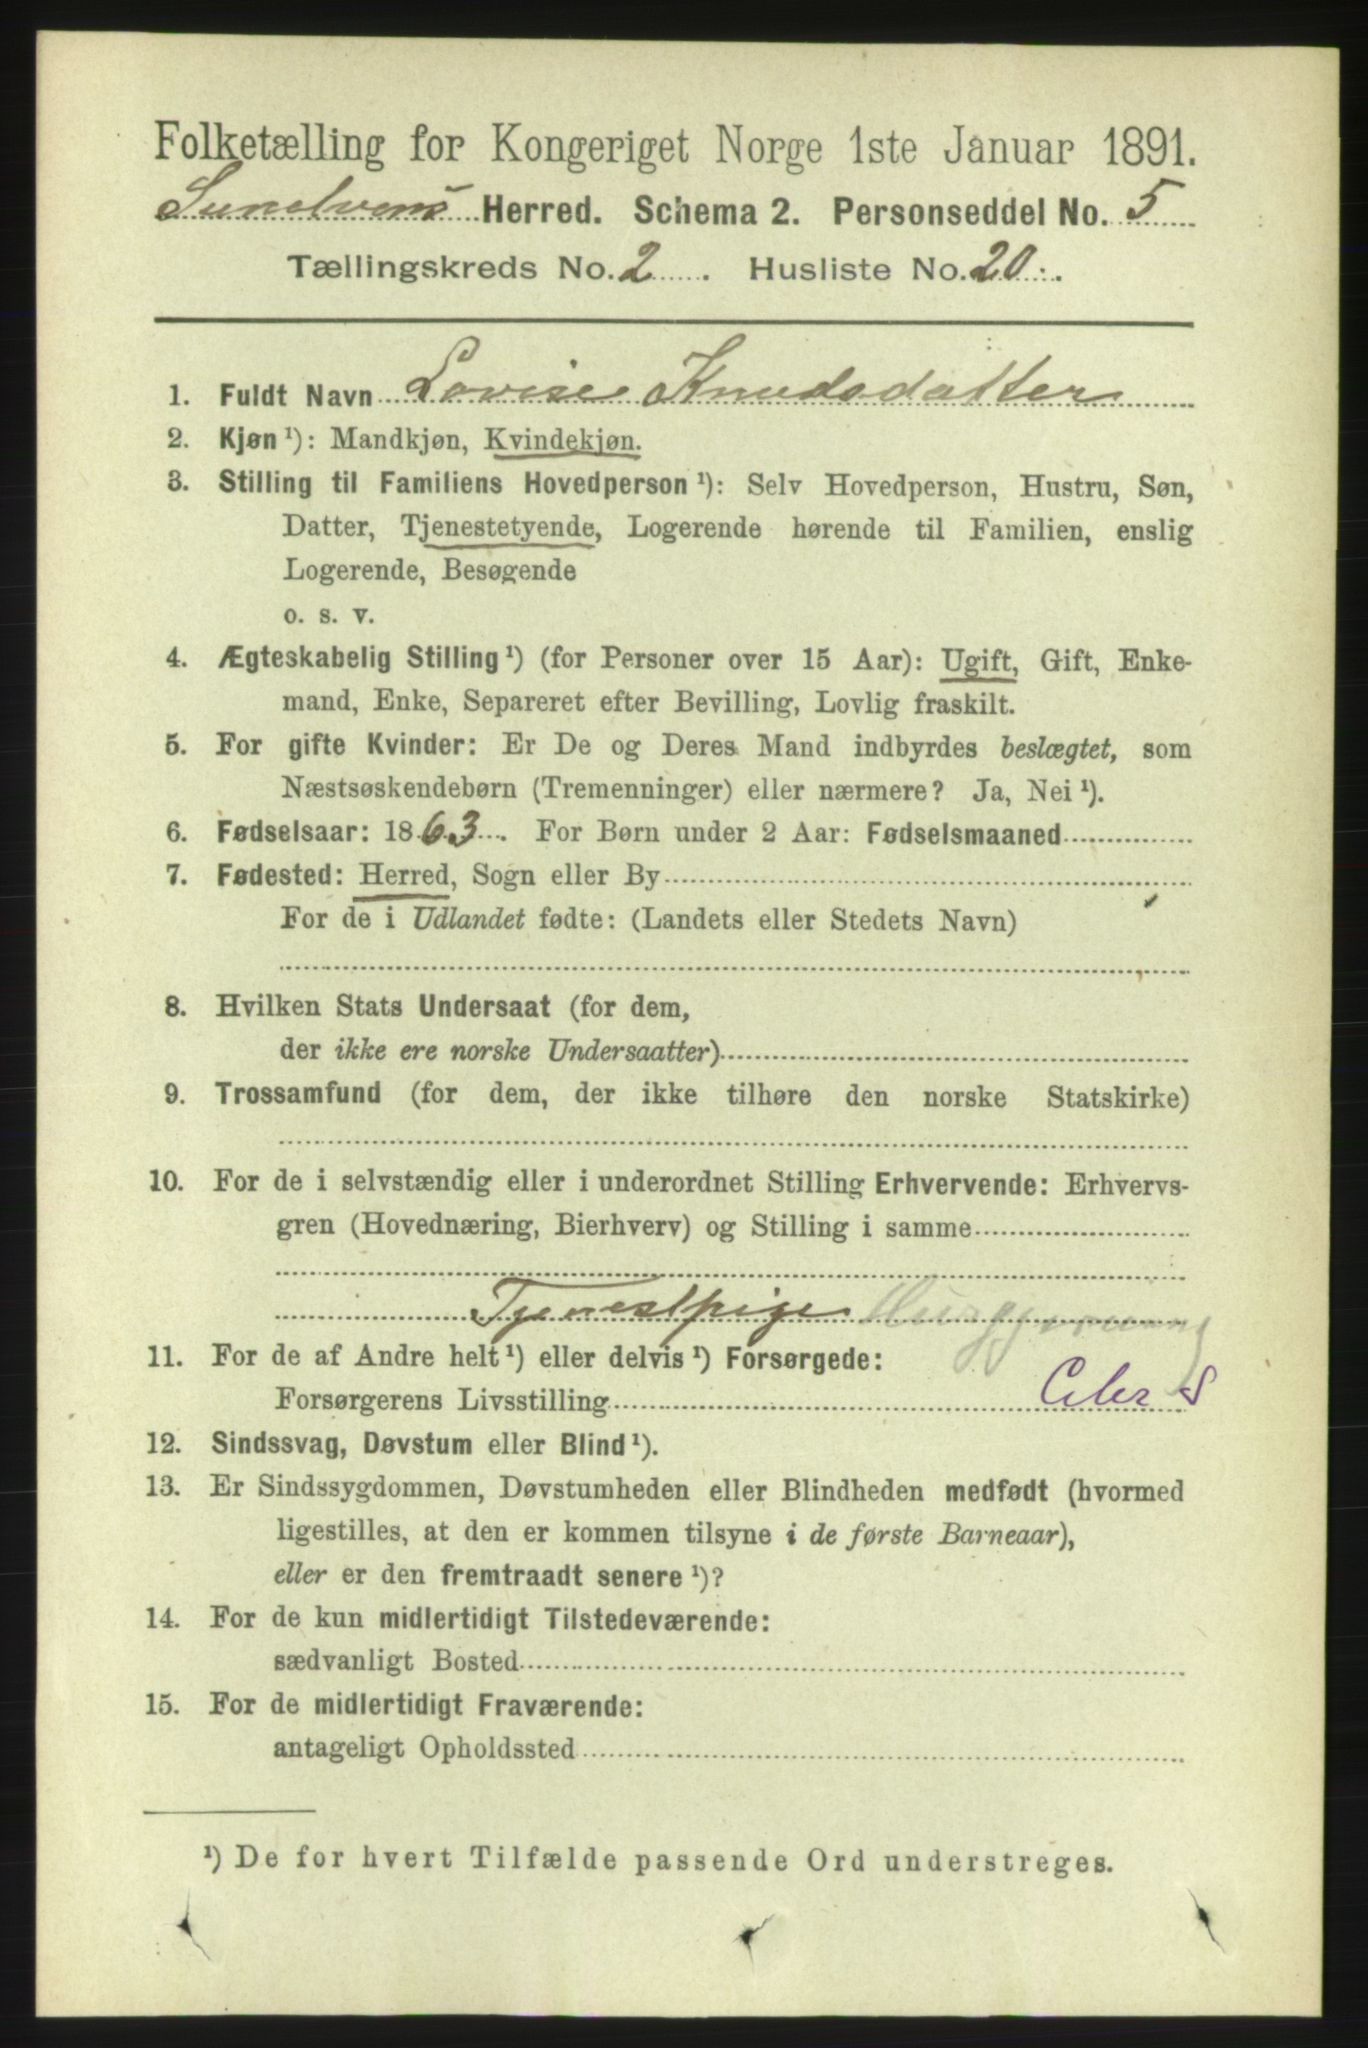 Folketælling for Kongeriget Norge 1ste Januar 1891.
Sunelvens Herred. Schema 2. Personseddel No. 5
Tællingskreds No. 2. Husliste No. 20.
1. Fuldt Navn Lovise Knudsdatter
2. Kjøn ¹): Mandkjøn, Kvindekjøn.
3. Stilling til Familiens Hovedperson ¹): Selv Hovedperson, Hustru, Søn,
Datter, Tjenestetyende, Logerende hørende til Familien, enslig
Logerende, Besøgende
o. s. v.
4. Ægteskabelig Stilling ¹) (for Personer over 15 Aar): Ugift, Gift, Enke-
mand, Enke, Separeret efter Bevilling, Lovlig fraskilt.
5. For gifte Kvinder: Er De og Deres Mand indbyrdes beslægtet, som
Næstsøskendebørn (Tremenninger) eller nærmere? Ja, Nei ¹).
6. Fødselsaar: 1863. For Børn under 2 Aar: Fødselsmaaned
7. Fødested: Herred, Sogn eller By
For de i Udlandet fødte: (Landets eller Stedets Navn)
8. Hvilken Stats Undersaat (for dem,
der ikke ere norske Undersaatter)
9. Trossamfund (for dem, der ikke tilhøre den norske Statskirke)
10. For de i selvstændig eller i underordnet Stilling Erhvervende: Erhvervs-
gren (Hovednæring, Bierhverv) og Stilling i samme
Tjenestpige Husgjerning
11. For de af Andre helt ¹) eller delvis ¹) Forsørgede:
Forsørgerens Livsstilling
12. Sindssvag, Døvstum eller Blind ¹).
13. Er Sindssygdommen, Døvstumheden eller Blindheden medfødt (hvormed
ligestilles, at den er kommen tilsyne i de første Barneaar),
eller er den fremtraadt senere ¹)?
14. For de kun midlertidigt Tilstedeværende:
sædvanligt Bosted
15. For de midlertidigt Fraværende:
antageligt Opholdssted
¹) De for hvert Tilfælde passende Ord understreges.